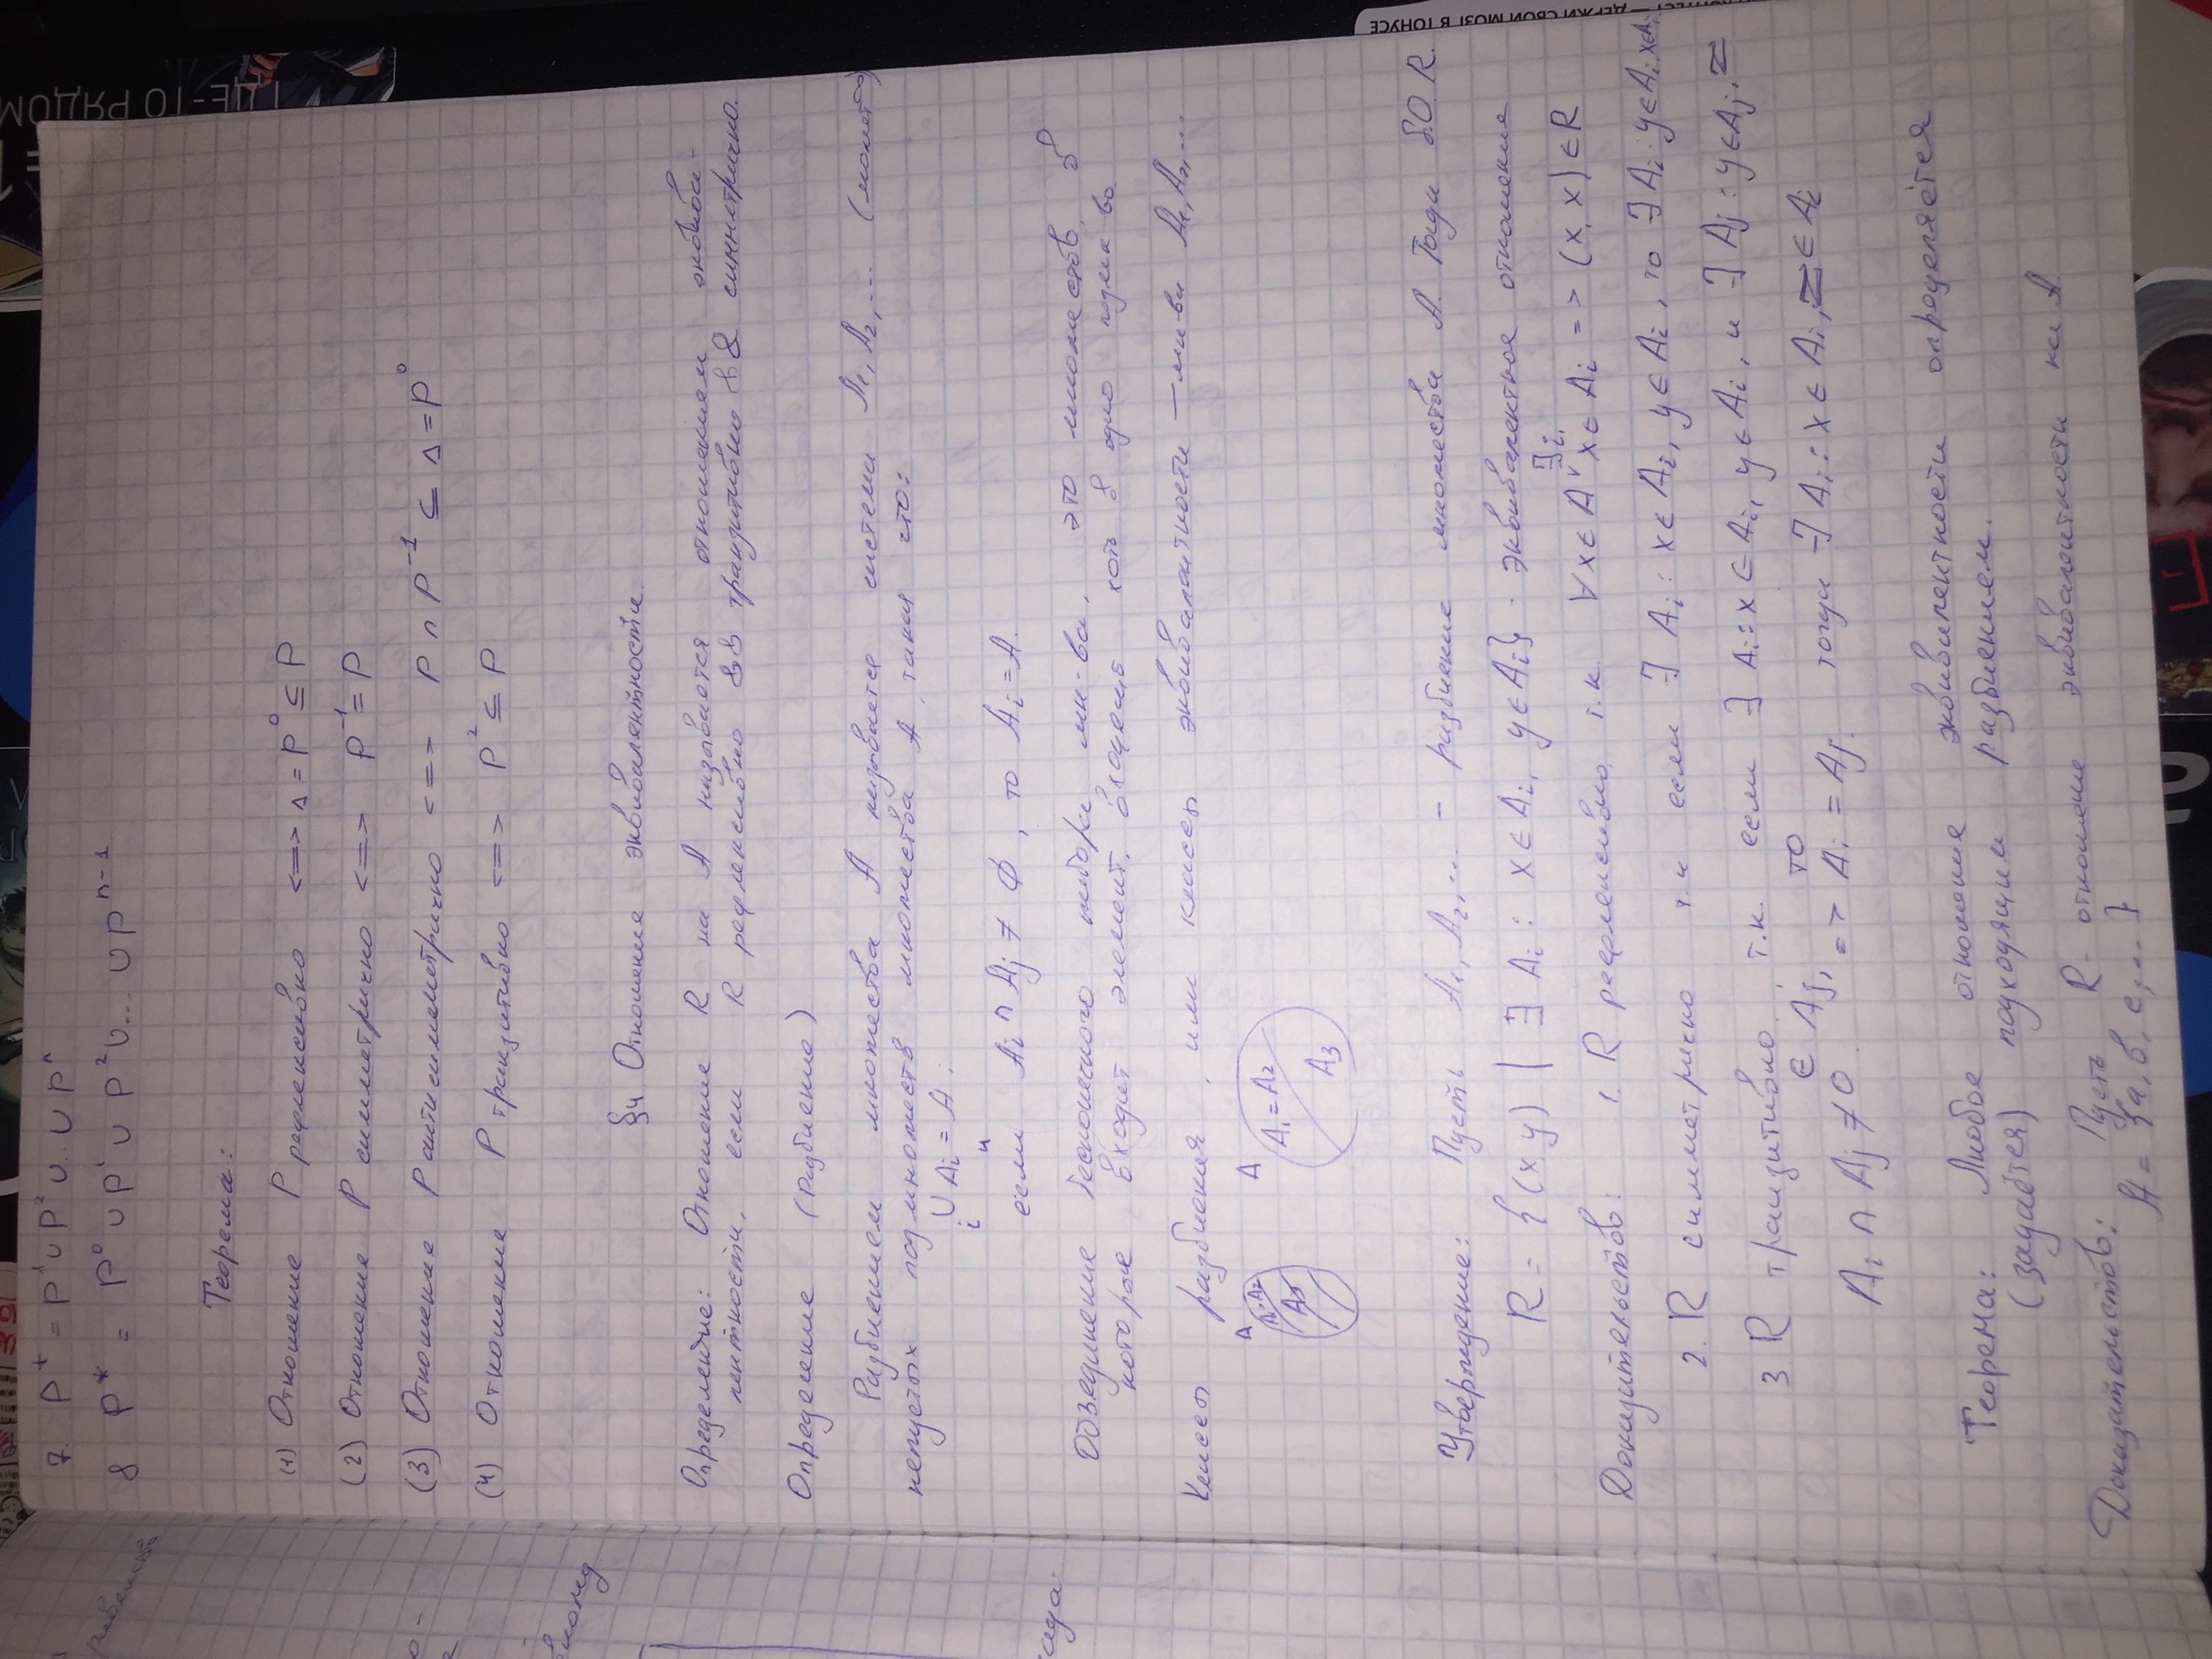 7. P⁺ = P¹ ∪ P² ∪ .. ∪ Pⁿ
8 P* = P⁰ ∪ P¹ ∪ P² ∪ ... ∪ Pⁿ⁻¹
Теорема:
(1) Отношение P рефлексивно <=> Δ = P⁰ ⊆ P
(2) Отношение P симметрично <=> P⁻¹ = P
(3) Отношение P антисимметрично <=> P ∩ P⁻¹ ⊆ Δ = P⁰
(4) Отношение P транзитивно <=> P² ⊆ P
§4. Отношение эквивалентности.
Определение: Отношение R на A называется отношением эквива-
лентности, если R рефлексивно && транзитивно && симметрично.
Определение (Разбиение)
Разбиением множества A называется система A₁, A₂, ... (может ∞)
непустых подмножеств множества A, такая что:
∪ Aᵢ = A;
i
и
если Aᵢ ∩ Aⱼ ≠ ∅, то Aᵢ = A.
Объединение бесконечного набора мн-ва, это множеств, в
которые входит элемент, входящь хоть в одно подмн во.
Классы разбиения, или классы эквивалентности – мн ва A₁, A₂, ...
A
A₁=A₂
A₃
A
A₁ = A₂
A₃
Утверждение: Пусть A₁, A₂, ... – разбиение множества A. Тогда б.О. R.
R = {(x,y) | ∃ Aᵢ : x ∈ Aᵢ, y ∈ Aᵢ} - эквивалентное отношение
∃i,
Доказательств: 1. R рефлексивно, т.к. ∀x ∈ A ˅ x ∈ Aᵢ => (x, x) ∈ R
2. R симметрично т.к если ∃ Aᵢ : x ∈ Aᵢ, y ∈ Aᵢ, то ∃ Aᵢ : y ∈ Aᵢ, x ∈ Aᵢ
3 R транзитивно, т.к. если ∃ Aᵢ : x ∈ Aᵢ, y ∈ Aᵢ, и ∃ Aⱼ : y ∈ Aⱼ, z
∈ Aⱼ, то
Aᵢ ∩ Aⱼ ≠ 0 => Aᵢ = Aⱼ. тогда ∃ Aᵢ : x ∈ Aᵢ, z ∈ Aᵢ
Теорема: Любое отношение эквивалентности определяется
(задаётся) подходящим разбиением.
Доказательств: Пусть R - отношение эквивалентности на A.
A = {a, b, c, ... }
ГДЕ-ТО РЯДОМ
ДЕРЖИ СВОЙ МОЗГ В ТОНУСЕ